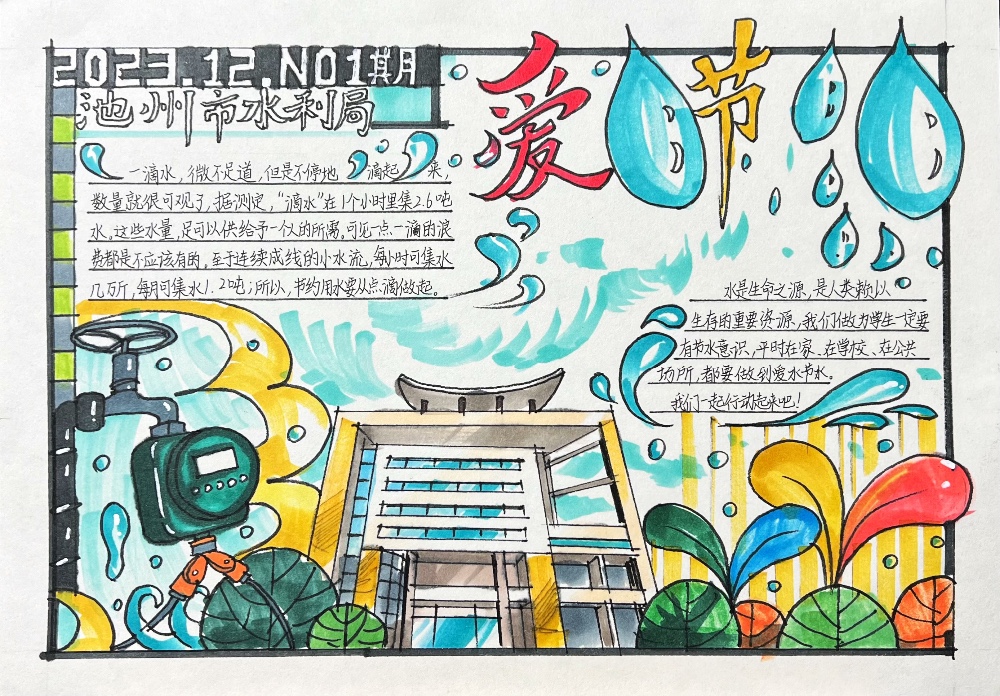 2023.12.NO1期
池州市水利局
爱 节
一滴水,微不足道,但是不停地 滴起 来,
数量就很可观了,据测定,“滴水”在1个小时里集2.6吨
水.这些水量,足可以供给予一 的所需.可见一点一滴的浪
费都是不应该有的.至于连续成线的小水流,每小时可集水
几万斤,每月可集水1.20吨;所以,节约用水要从点滴做起。
水是生命之源,是人类赖以
生存的重要资源,我们做为学生一定要
有节水意识,平时在家、在学校、在公共
场所,都要做到爱水节水。
我们一起行动起来吧!